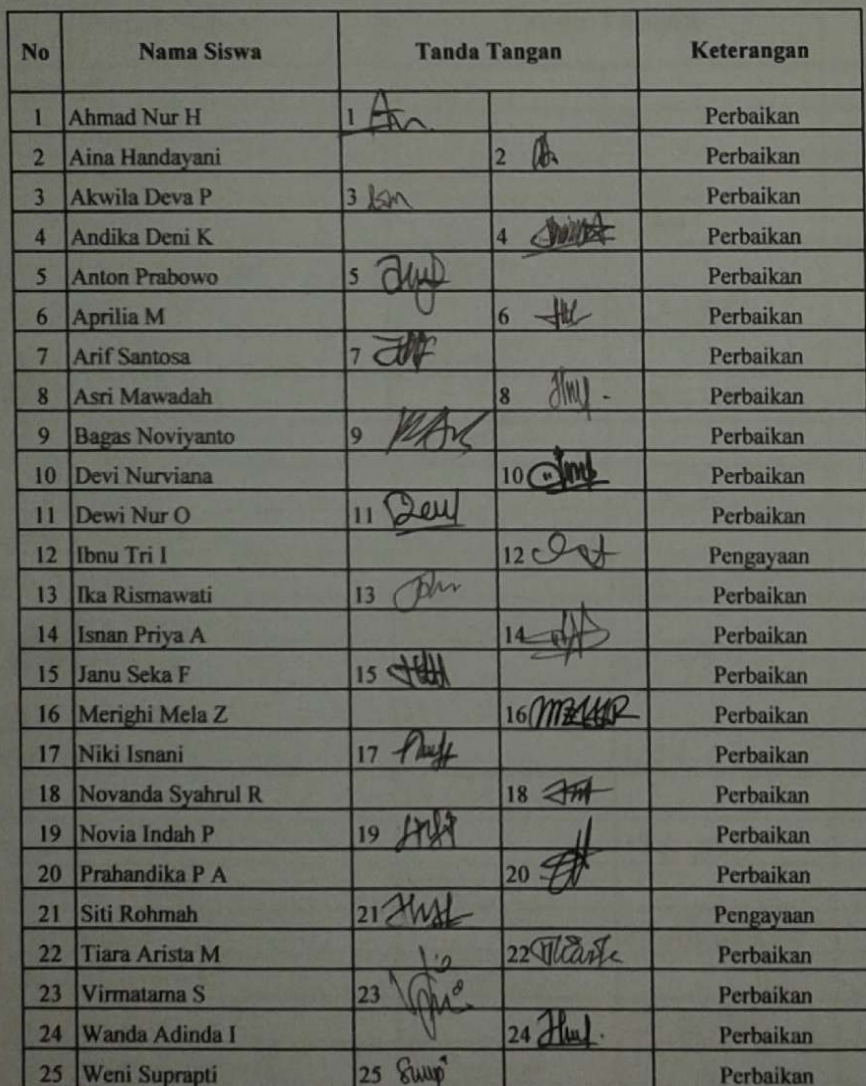 No Nama Siswa Tanda Tangan Keterangan
1 Ahmad Nur H 1 Perbaikan
2 Aina Handayani 2 Perbaikan
3 Akwila Deva P 3 Perbaikan
4 Andika Deni K 4 Perbaikan
5 Anton Prabowo 5 Perbaikan
6 Aprilia M 6 Perbaikan
7 Arif Santosa 7 Perbaikan
8 Asri Mawadah 8 Perbaikan
9 Bagas Noviyanto 9 Perbaikan
10 Devi Nurviana 10 Perbaikan
11 Dewi Nur O 11 Perbaikan
12 Ibnu Tri I 12 Pengayaan
13 Ika Rismawati 13 Perbaikan
14 Isnan Priya A 14 Perbaikan
15 Janu Seka F 15 Perbaikan
16 Merighi Mela Z 16 Perbaikan
17 Niki Isnani 17 Perbaikan
18 Novanda Syahrul R 18 Perbaikan
19 Novia Indah P 19 Perbaikan
20 Prahandika P A 20 Perbaikan
21 Siti Rohmah 21 Pengayaan
22 Tiara Arista M 22 Perbaikan
23 Virmatama S 23 Perbaikan
24 Wanda Adinda I 24 Perbaikan
25 Weni Suprapti 25 Perbaikan